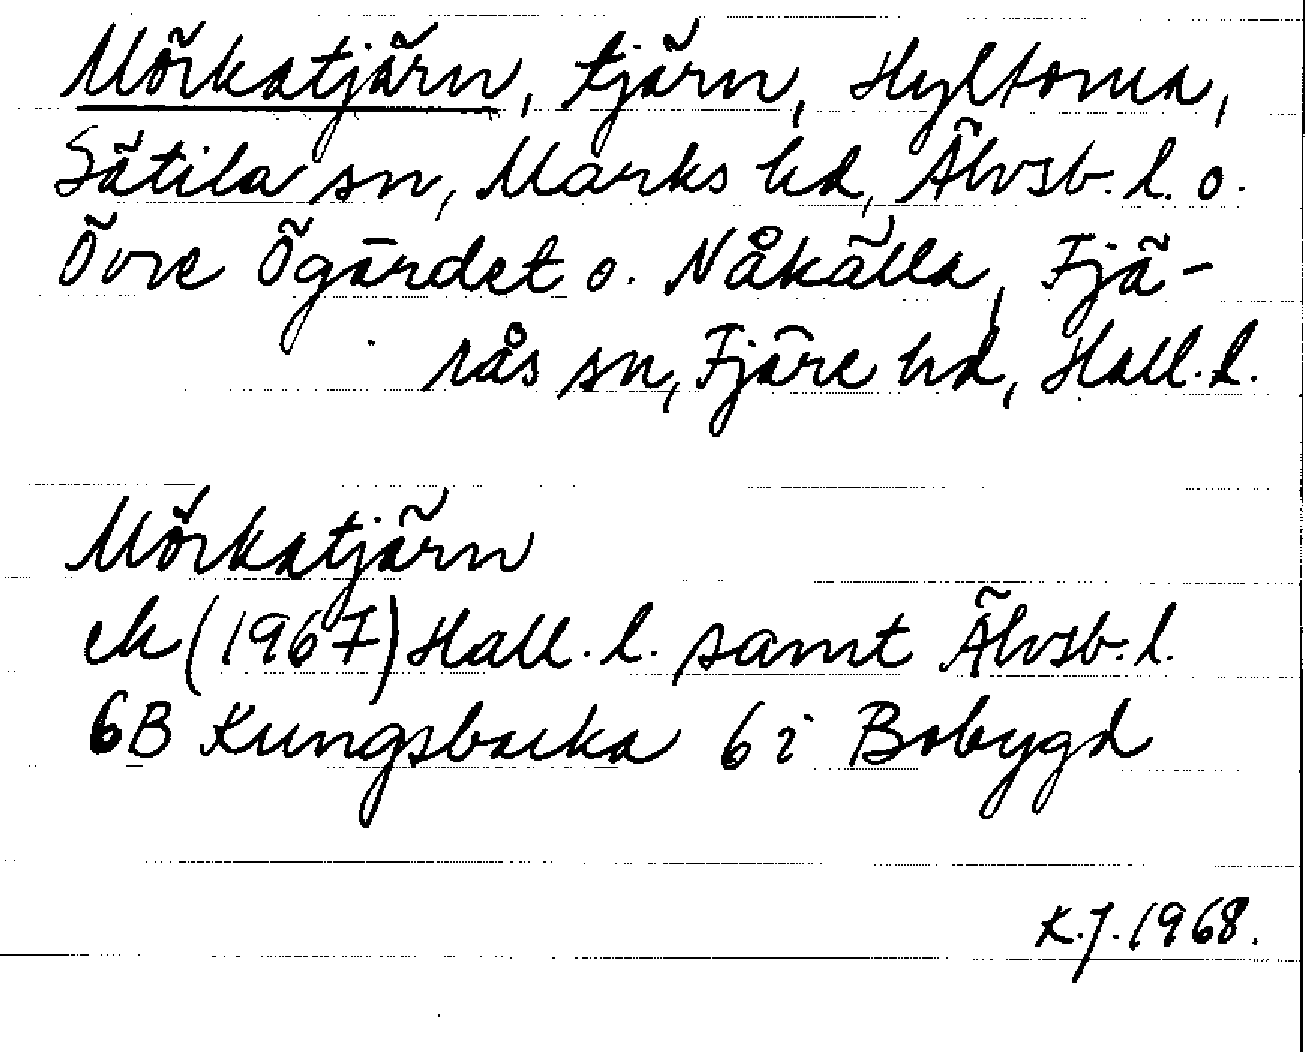 Mörkatjärn, tjärn, Hyltorna,
Sätila sn, Marks hd, Älvsb. l. o.
Övre Ögärdet o. Nåkälla, Fjä-
rås sn, Fjäre hd, Hall. l.
Mörkatjärn
ek (1967) Hall. l. samt Älvsb. l.
6B Kungsbacka 6 i Bobygd
K.J. 1968.